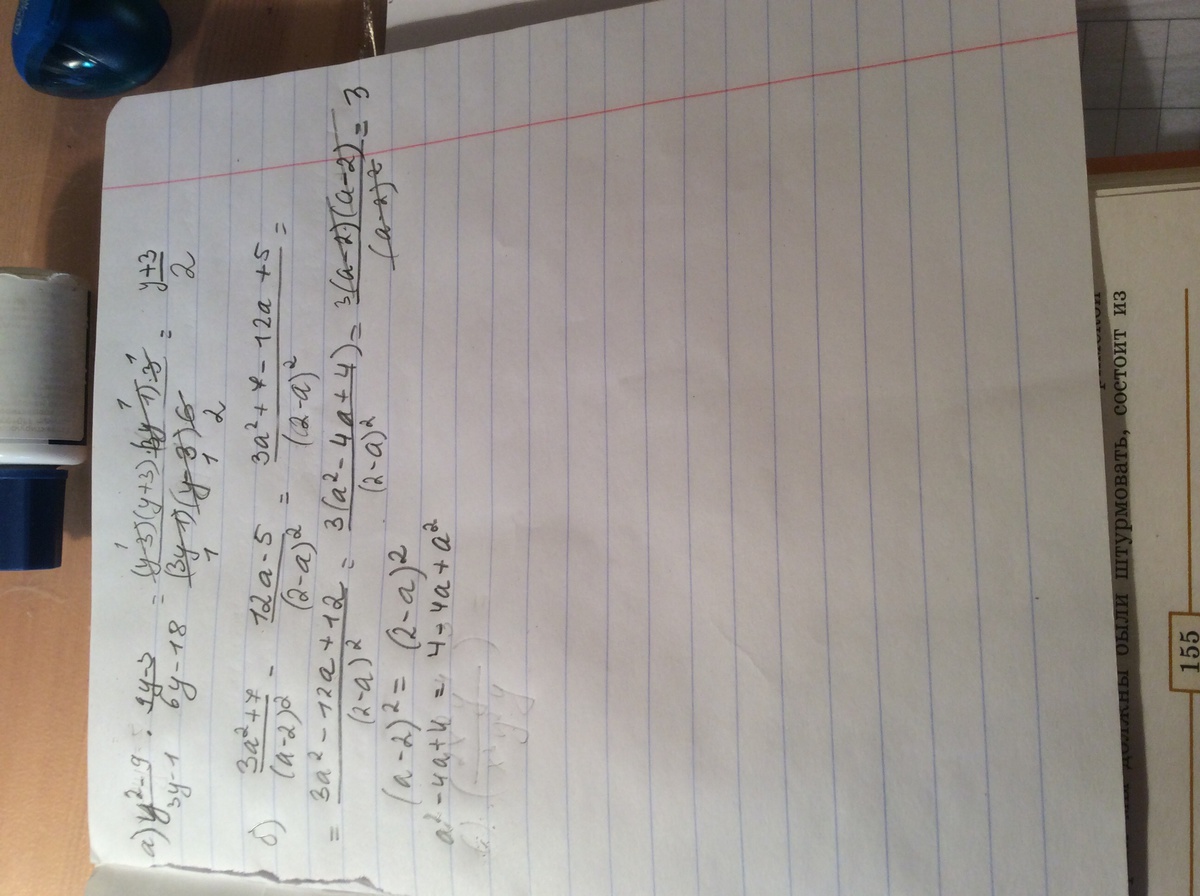 а) (y²-9)/(3y-1) · (9y-3)/(6y-18) = ((y-3)(y+3)·(3y-1)·3)/((3y-1)(y-3)6) = (y+3)/2
1 1 1
1 1 2
б) (3a²+7)/(a-2)² - (12a-5)/(2-a)² = (3a²+7-12a+5)/((2-a)²) =
= (3a²-12a+12)/(2-a)² = 3(a²-4a+4)/(2-a)² = 3(a-2)(a-2)/(a-2)² = 3
(a-2)² = (2-a)²
a²-4a+4 = 4-4a+a²
должны были штурмовать, состоит из
155